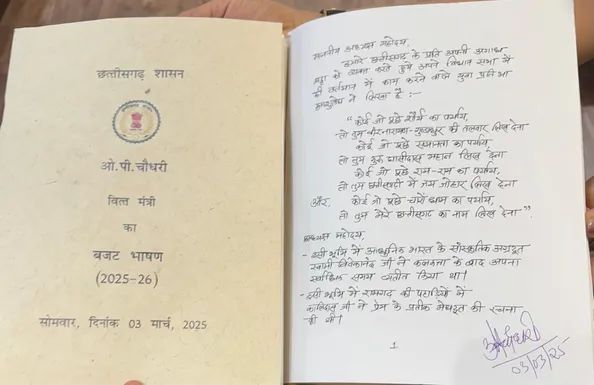 छत्तीसगढ़ शासन
ओ.पी.चौधरी
वित्त मंत्री
का
बजट भाषण
(2025-26)
सोमवार, दिनांक 03 मार्च, 2025
माननीय अध्यक्ष महोदय,
हमारे छत्तीसगढ़ के प्रति अपनी अगाध
श्रद्धा को व्यक्त करते हुये अपने विधान सभा में
ही वर्तमान में काम करने वाले युवा
ने लिखा है :-
"कोई जो पूछे शौर्य का पर्याय,
तो तुम वीरनारायण-गुण्डाधुर की तलवार लिख देना
कोई जो पूछे समानता का पर्याय,
तो तुम गुरु घासीदास महान लिख देना
कोई जो पूछे राम-राम का पर्याय,
तो तुम छत्तीसगढ़ी में जय जोहार लिख देना
और, कोई जो पूछे चारों धाम का पर्याय,
तो तुम मेरे छत्तीसगढ़ का नाम लिख देना".
अध्यक्ष महोदय
- इसी भूमि में आधुनिक भारत के सांस्कृतिक अग्रदूत
स्वामी विवेकानंद जी ने कलकत्ता के बाद अपना
सर्वाधिक समय व्यतीत किया था।
- इसी भूमि में रामगढ़ की पहाड़ियों में
कालिदास जी ने प्रेम के प्रतीक मेघदूत की रचना
की थी।
1
03/03/25